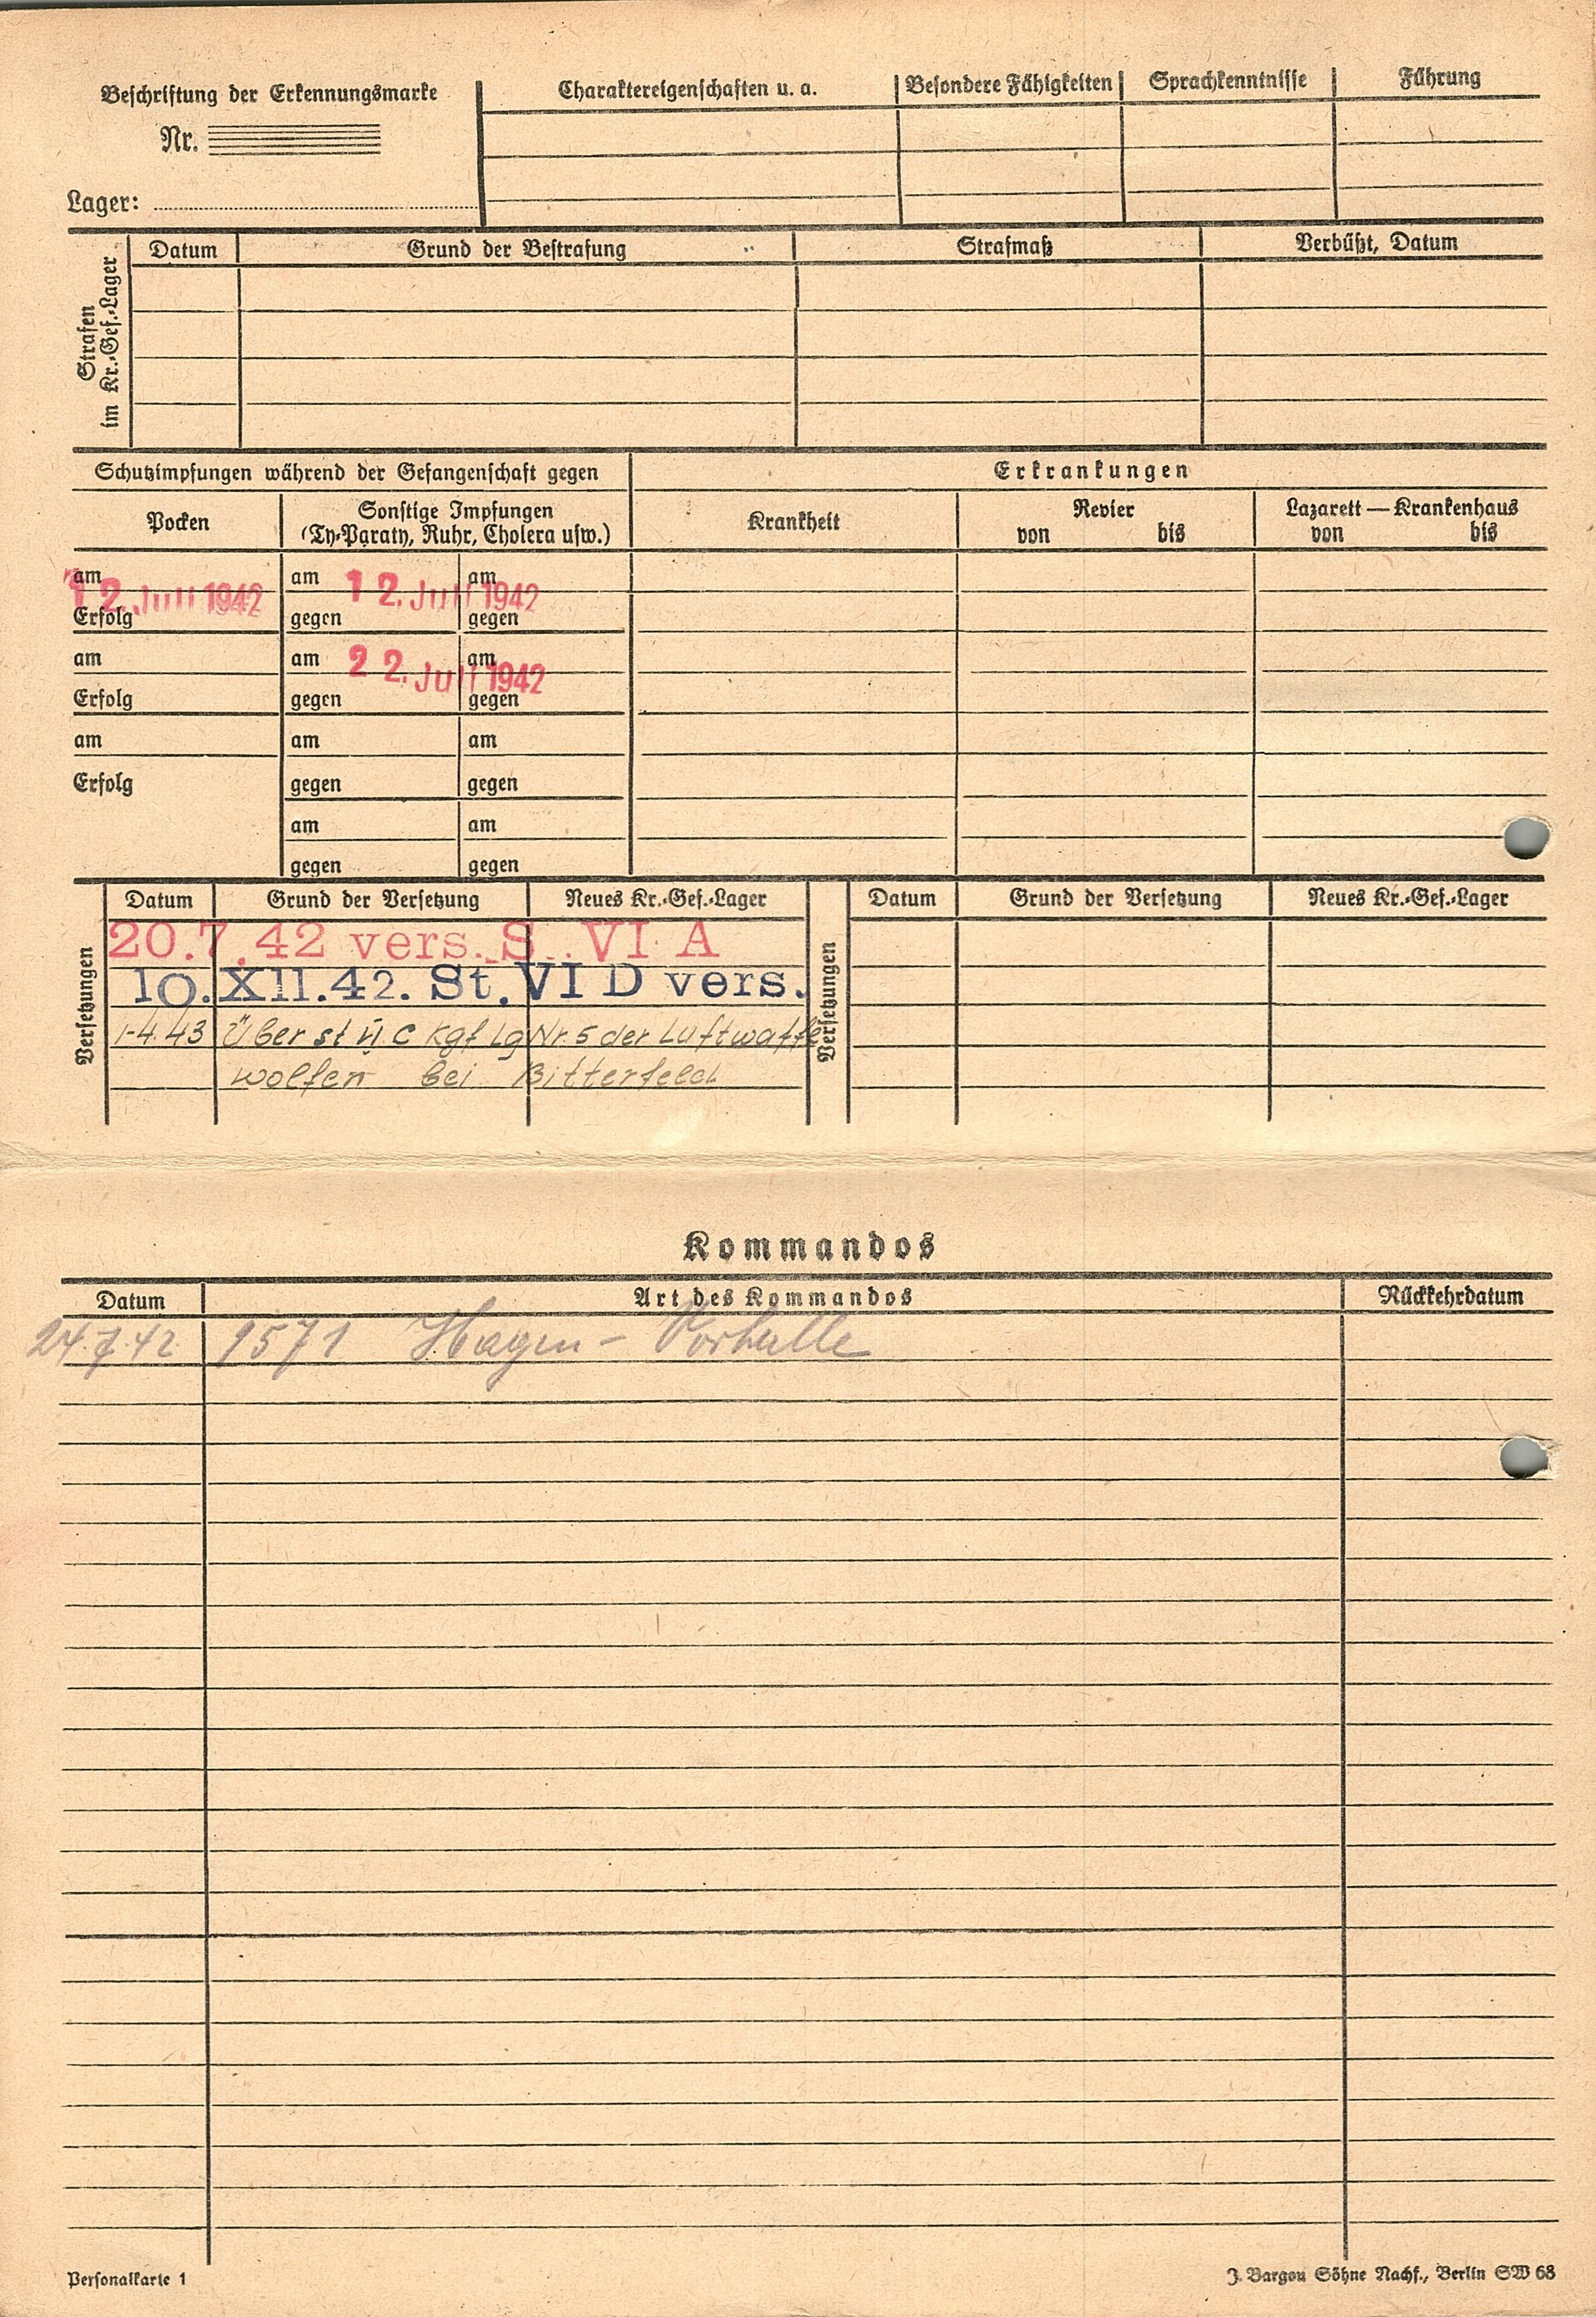 Beschriftung der Erkennungsmarke
Nr.
Lager:
Charaktereigenschaften u. a. Besondere Fähigkeiten Sprachkenntnisse Führung
Strafen
im Kr.-Gef.-Lager
Datum Grund der Bestrafung Strafmaß Verbüßt, Datum
Schutzimpfungen während der Gefangenschaft gegen Erkrankungen
Pocken
Sonstige Impfungen
(Ty-Paraty, Ruhr, Cholera usw.)
Krankheit
Revier
von bis
Lazarett — Krankenhaus
von bis
am am am
12. Juli 1942 12. Juli 1942
Erfolg gegen gegen
am am am
22. Juli 1942
Erfolg gegen gegen
am am am
Erfolg gegen gegen
am am
gegen gegen
Versetzungen
Datum Grund der Versetzung Neues Kr.-Gef.-Lager
20.7.42 vers. S. VI A
10.XII.42. St. VI D vers.
1-4.43 Über st VI C Kgf Lg Nr. 5 der Luftwaffe
Wolfen bei Bitterfeld
Versetzungen
Datum Grund der Versetzung Neues Kr.-Gef.-Lager
Kommandos
Datum Art des Kommandos Rückkehrdatum
24.7.42 1571 Hagen - Vorhalle
Personalkarte 1
J. Bargou Söhne Nachf., Berlin SW 68